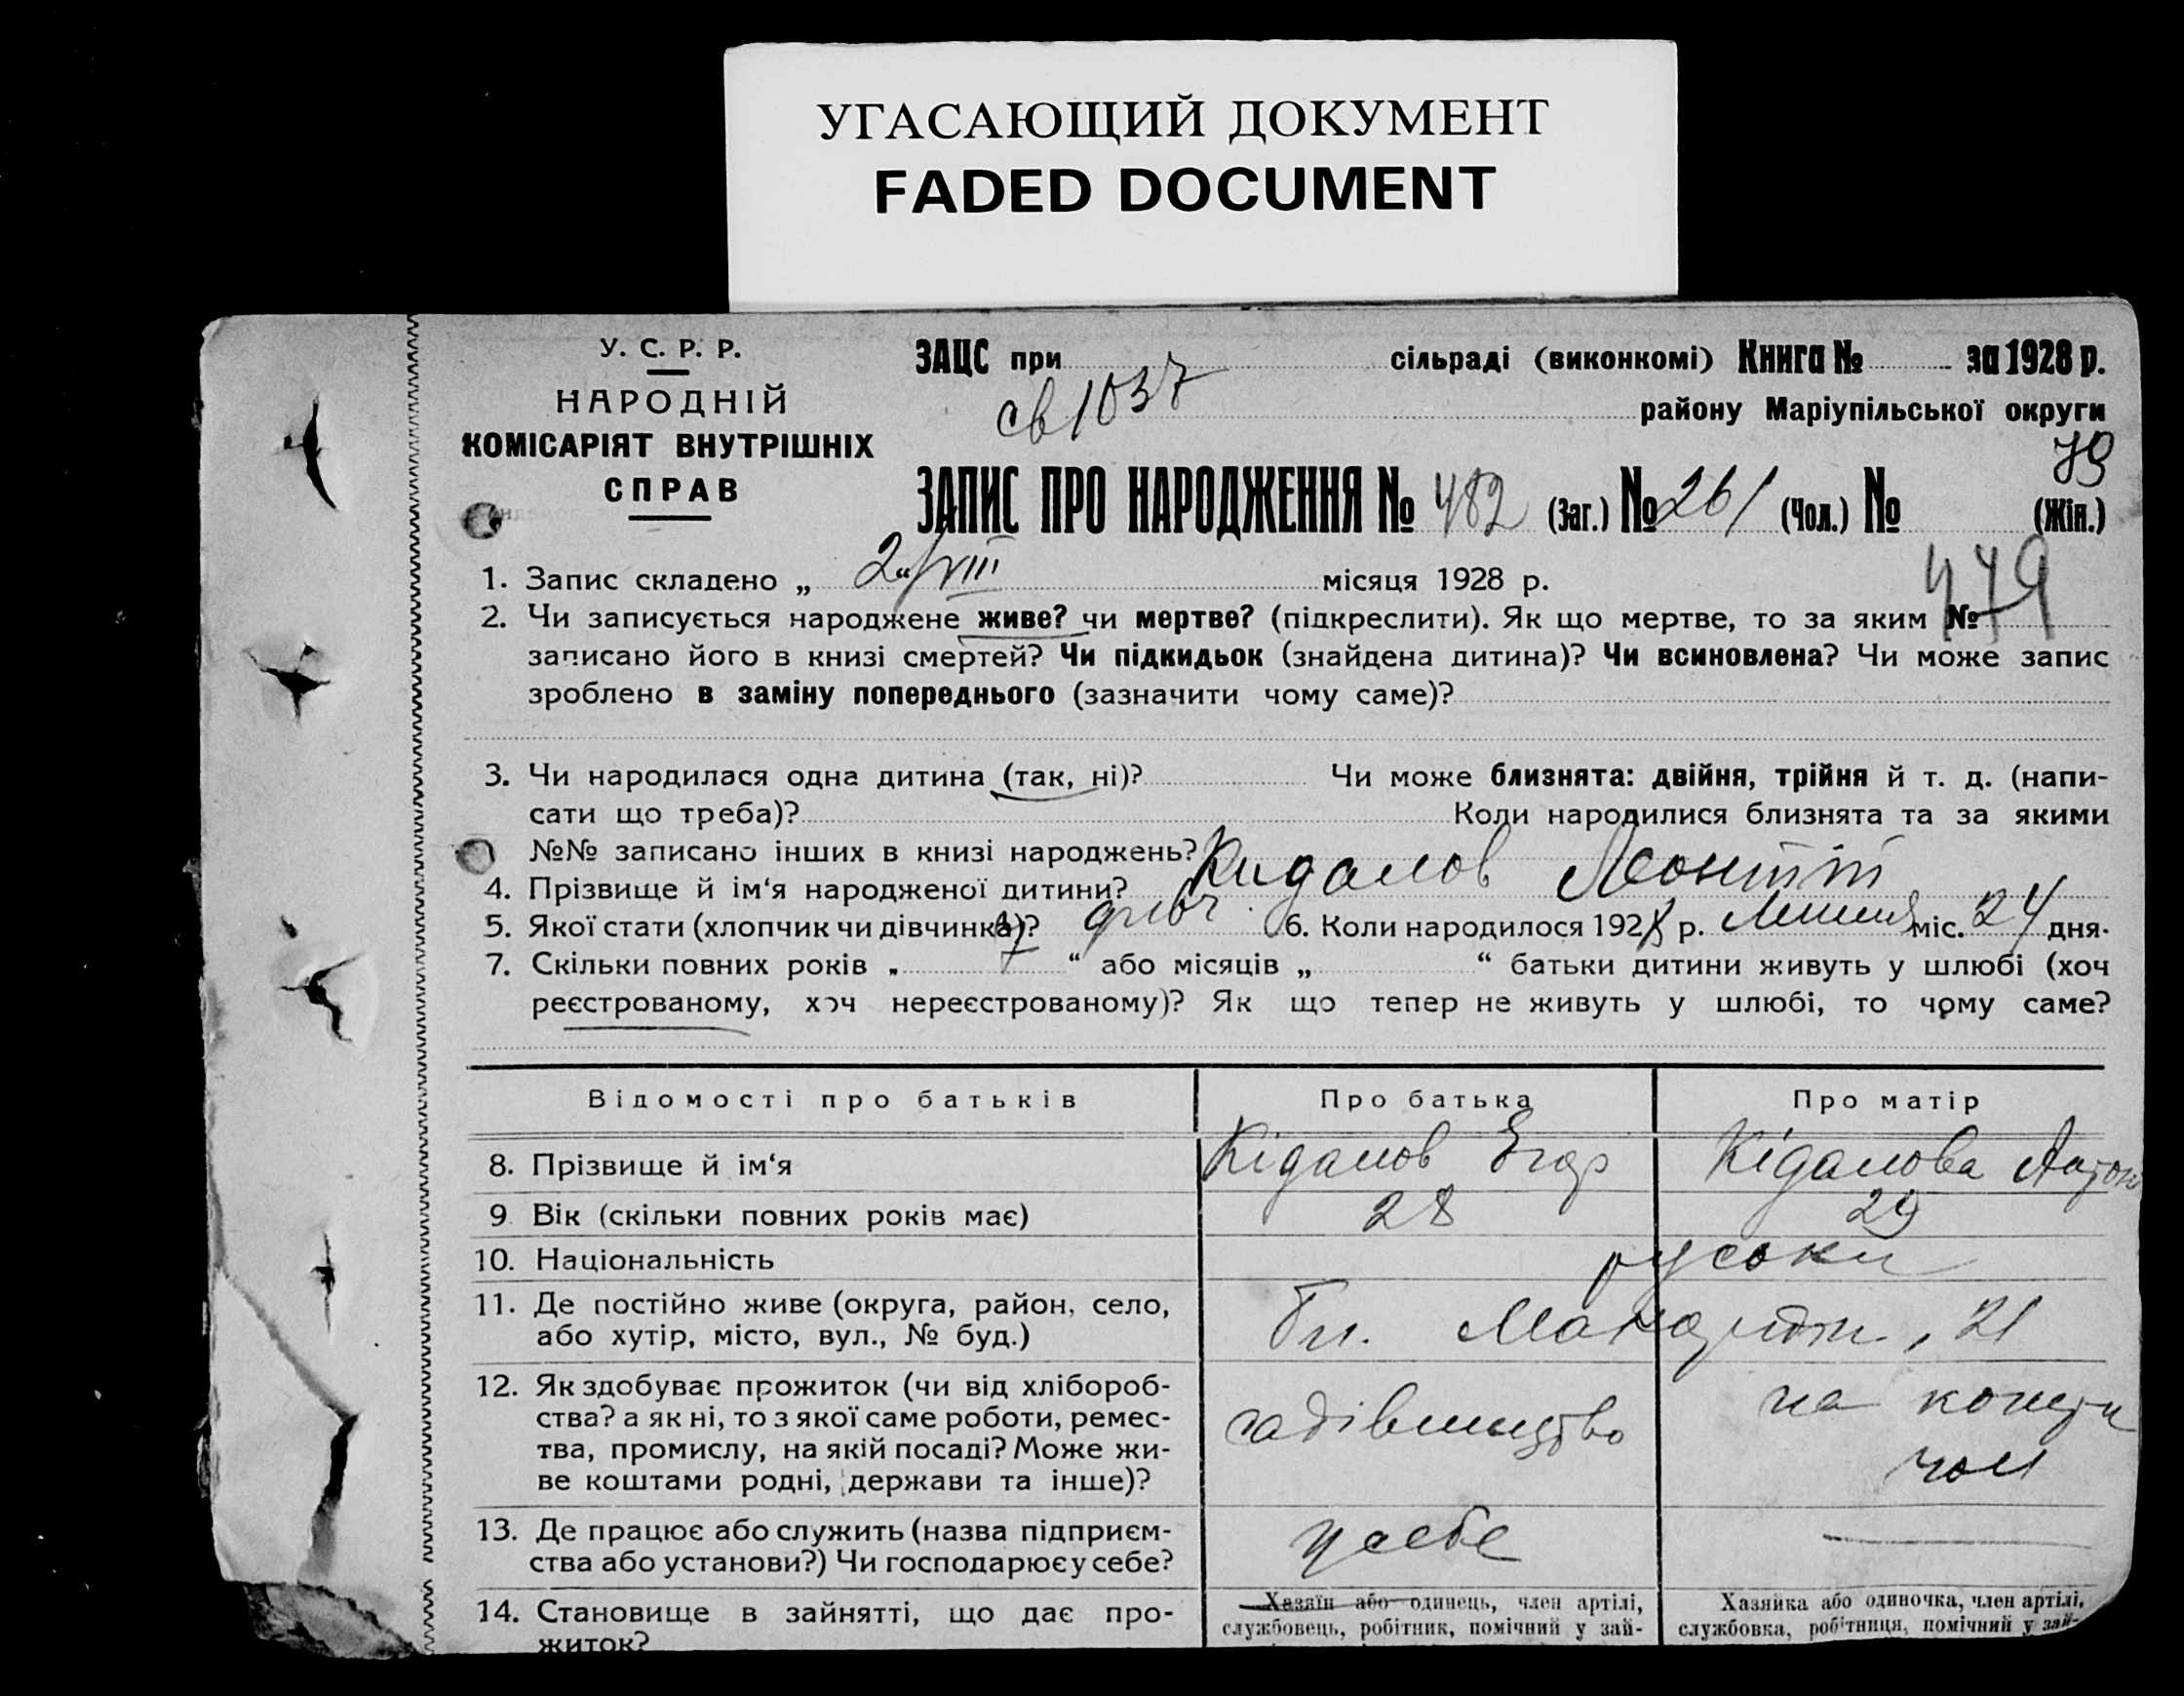 УГАСАЮЩИЙ ДОКУМЕНТ
FADED DOCUMENT
У. С. Р. Р.
НАРОДНІЙ
КОМІСАРІЯТ ВНУТРІШНІХ
СПРАВ
ЗАЦС при сільраді (виконкомі) Книга № за 1928 р.
св 1037
району Маріупільської округи
79
ЗАПИС ПРО НАРОДЖЕННЯ № 482 (Заг.) № 261 (Чол.) № (Жін.)
479
1. Запис складено „ 2 “ VIII місяця 1928 р.
2. Чи записується народжене живе? чи мертве? (підкреслити). Як що мертве, то за яким №
записано його в книзі смертей? Чи підкидьок (знайдена дитина)? Чи всиновлена? Чи може запис
зроблено в заміну попереднього (зазначити чому саме)?
3. Чи народилася одна дитина (так, ні)? Чи може близнята: двійня, трійня й т. д. (напи-
сати що треба)? Коли народилися близнята та за якими
№№ записано інших в книзі народжень?
4. Прізвище й ім‘я народженої дитини? Кидалов
5. Якої стати (хлопчик чи дівчинка)? 6. Коли народилося 1928 р. міс. 24 дня.
7. Скільки повних років „ 7 “ або місяців „ “ батьки дитини живуть у шлюбі (хоч
реєстрованому, хоч нереєстрованому)? Як що тепер не живуть у шлюбі, то чому саме?
Відомості про батьків Про батька Про матір
8. Прізвище й ім‘я Кідалов Егор Кідалова
9. Вік (скільки повних років має) 28 29
10. Національність руськи
11. Де постійно живе (округа, район, село,
або хутір, місто, вул., № буд.) 21
12. Як здобуває прожиток (чи від хлібороб-
ства? а як ні, то з якої саме роботи, ремес-
тва, промислу, на якій посаді? Може жи-
ве коштами родні, держави та інше)?
садівництво
на кошти
чол
13. Де працює або служить (назва підприєм-
ства або установи?) Чи господарює у себе?
у себе
14. Становище в зайнятті, що дає про-
житок?
Хазяїн або одинець, член артілі,
службовець, робітник, помічний у зай-
Хазяйка або одиночка, член артілі,
службовка, робітниця, помічний у зай-